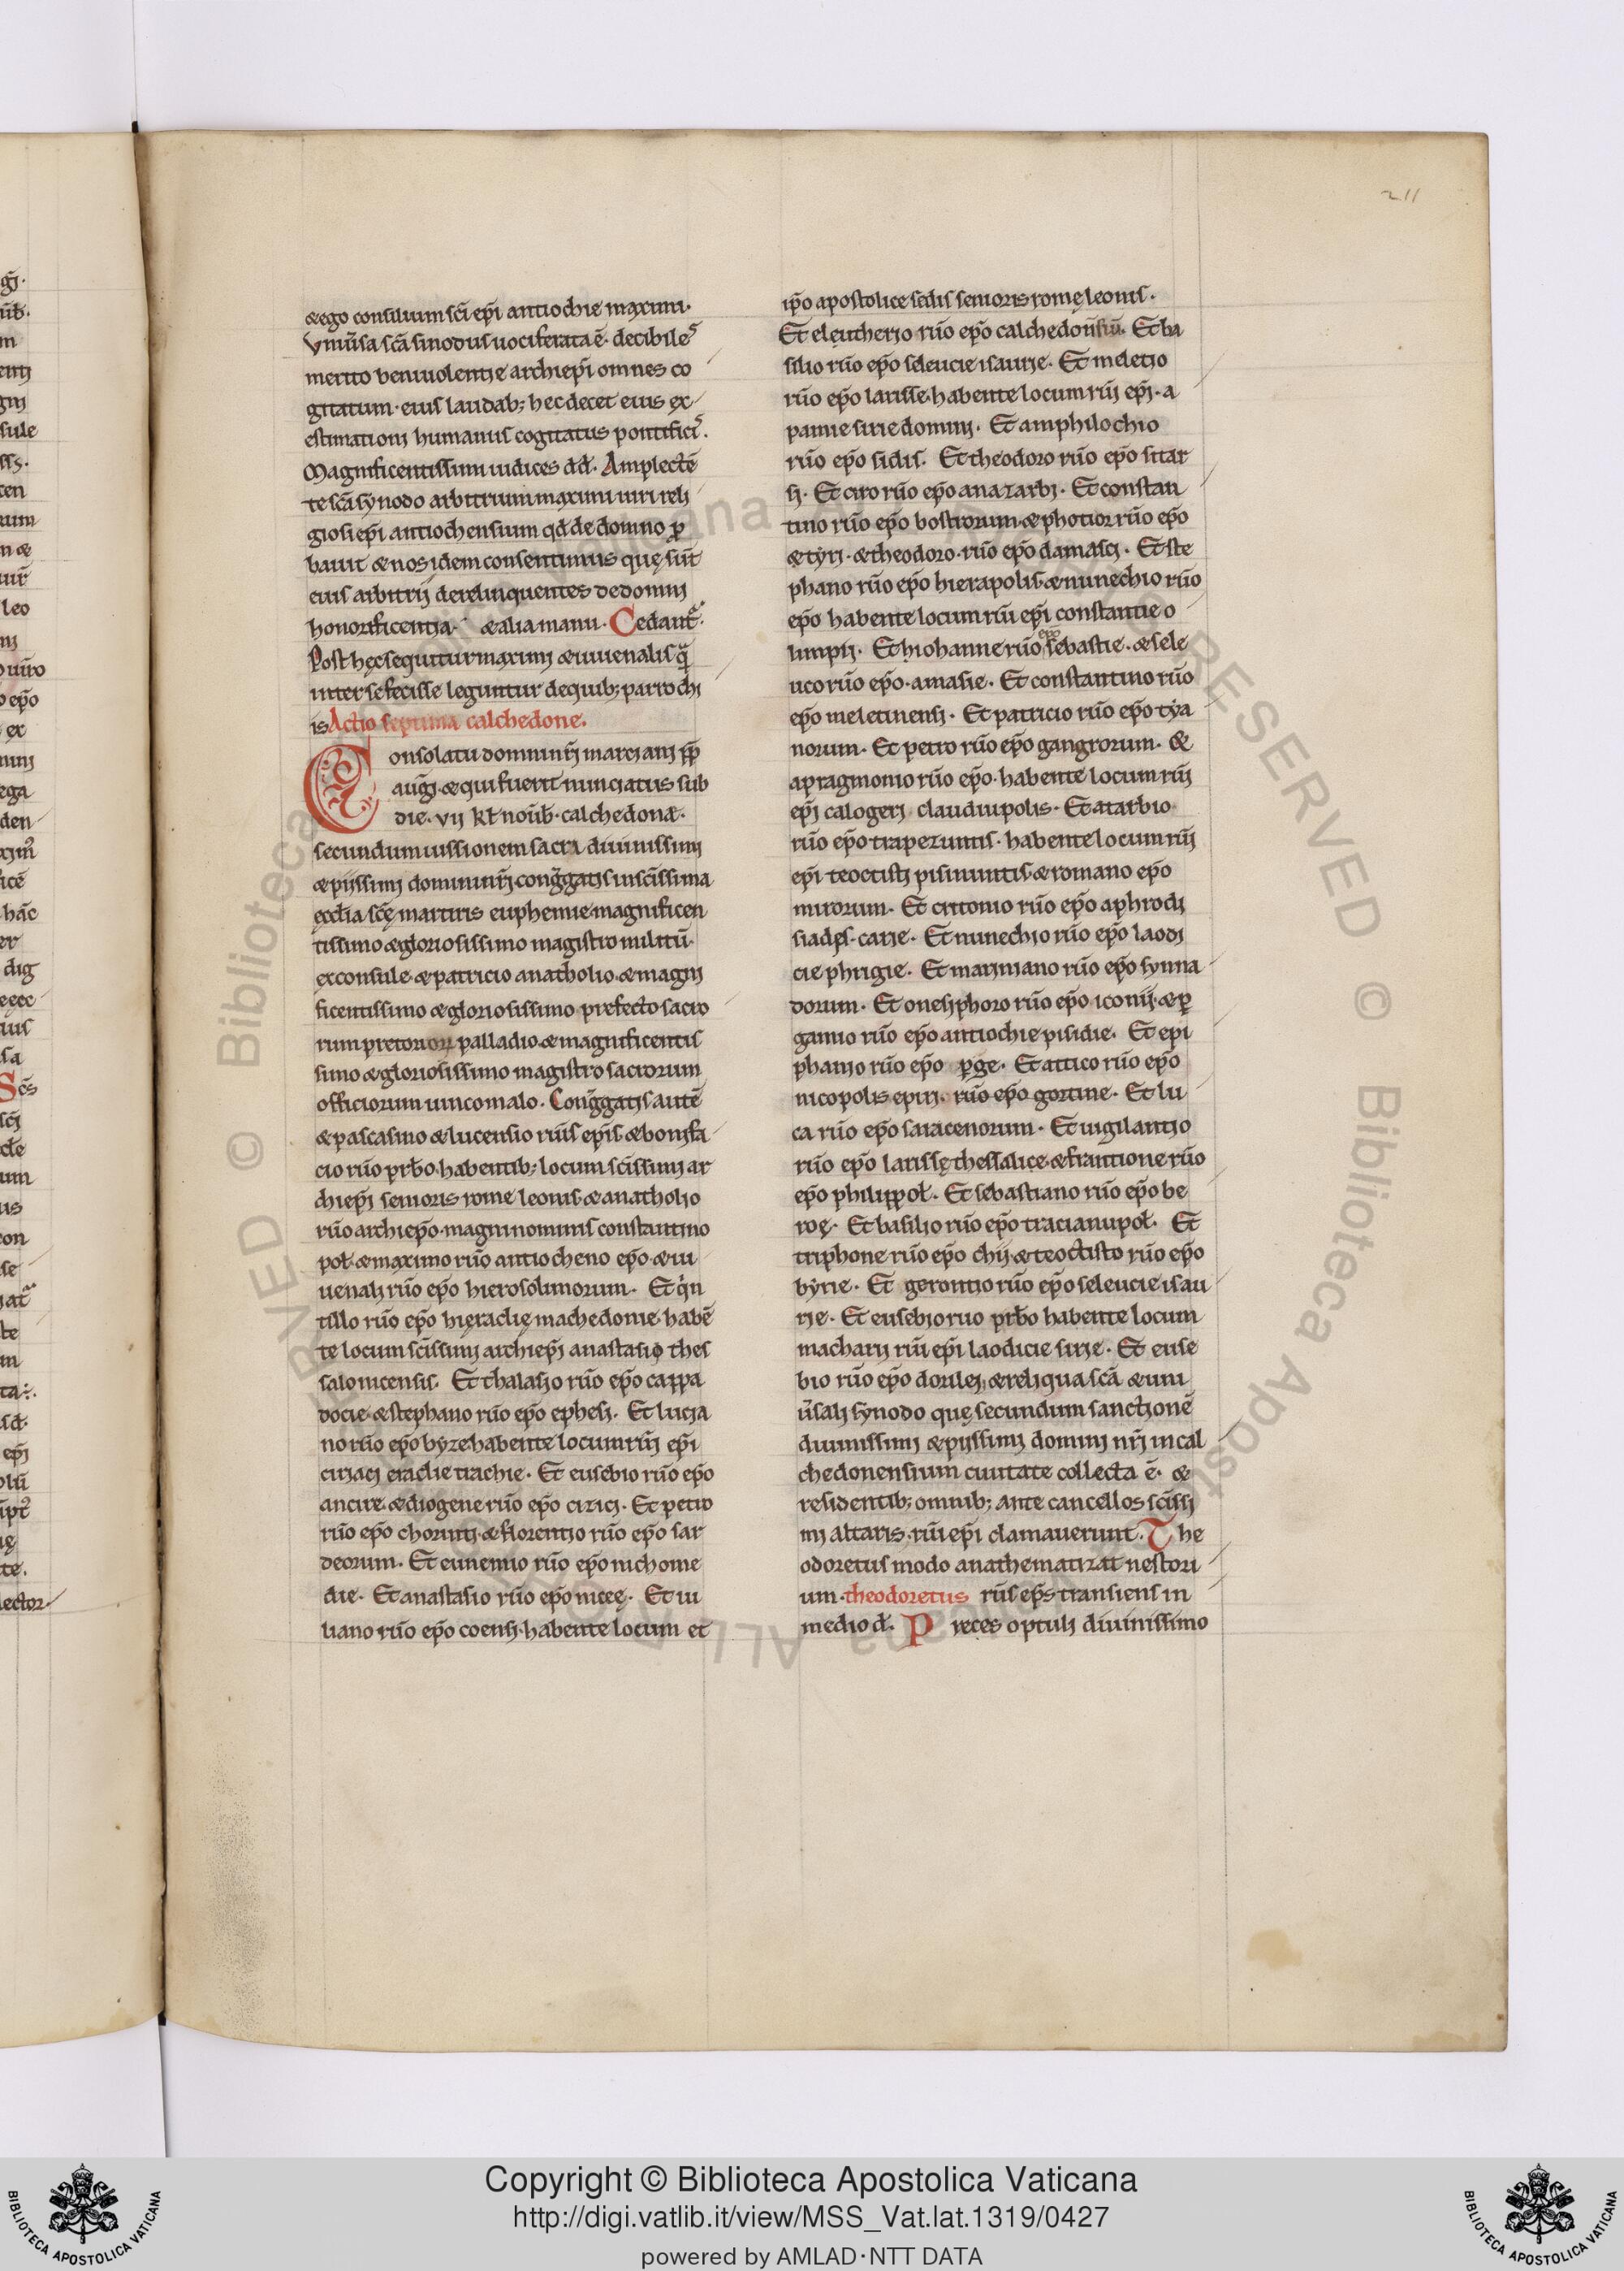 211
& ego consiliumsci epi antiochie maximi.
Vniūsa scā sinodus uociferata ē. decibile ͛
merito beniuolentie archiepi omnes co
gitatum. eius laudab; hec decet eius ex
estimationi humanus cogitatus pontifici ͛.
Magnificentissimi iudices dd̄. Amplectē
te scā synodo arbitrium maximi uiri reli
giosi epi antiochensium qd̄ de domno ꝓ
bauit & nos idem consentimus quę sūt
eius arbitrij derelinquentes dedomni
honorificentia. & alia manu. Cedant ͛.
Post hęc sequitur maximi & iuuenalis q̄
inter se fecisse leguntur de quib; parrochi
is Actio septima calchedone.
Consolatu domini nr̄i marciani pp̄
auḡ. & qui fuerit nunciatus sub
die. vij kł noub̄. calchedonæ.
secundum iussionem sacra diuinissimi
& pijssimi domini nr̄i conḡgatis in scissima
ęcclia scę martiris euphemie magnificen
tissimo & gloriosissimo magistro militū.
exconsule & patricio anatholio. & magni
ficentissimo & gloriosissimo prefecto sacro
rum pretoriorz palladio. & magnificentis
simo & gloriosissimo magistro sacrorum
officiorum uincomalo. Conḡgatis autē
& pascasino & lucensio rūis epis & bonifa
cio rūo prb̄o. habentib; locum scissimi ar
chiepi senioris rome leonis & anatholio
rūo archiepo. magni nominis constantino
pol̄. & maximo rūo antiocheno epo. & iu
uenali rūo epo hierosolimorum. Et qin
tillo rūo epo hięraclię machedonie. habē
te locum scissimi archiepi anastasio thes
salonicensis. Et thalasio rūo epo cappa
docie & stephano rūo epo ephesi. Et lucia
no rūo epo byze habente locum rūi epi
ciriaci eraclie trachie. Et eusebio rūo epo
ancire. & diogene rūo epo cizici. Et petro
rūo epo chorinti & florentio rūo epo sar
deorum. Et eunemio rūo epo nichome
die. Et anastasio rūo epo niceę. Et iu
liano rūo epo coensi. habente locum et
ipo apostolice sedis senioris romę leonis.
Et eleutherio rūo epo calchedonsiū. Et ba
silio rūo epo seleucie isaurie. Et meletio
rūo epo larisse. habente locum rūi epi. a
pamie sirie domini. Et amphilochio
rūo epo sidis. Et theodoro rūo epo sitar
si. Et ciro rūo epo anazarbi. Et constan
tino rūo epo bostrorum & photior rūo epo
& tyri. & theodoro. rūo epo damasci. Et ste
phano rūo epo hierapolis. & nunechio rūo
epo habente locum rūi epi constantie o
limpij. Et hiohanne rūo epo sebastie. & sele
uco rūo epo. amasie. Et constantino rūo
epo meletinensi. Et patricio rūo epo tya
norum. Et petro rūo epo gangrorum. &
apragmonio rūo epo. habente locum rūi
epi calogeri claudiupolis. Et atarbio
rūo epo trapezuntis. habente locum rūi
epi teoctisti pisinuntis. & romano epo
mirorum. Et critonio rūo epo aphrodi
siadps. carie. Et nunechio rūo epo laodi
cie phrigie. Et mariniano rūo epo synna
dorum. Et onesiphoro rūo epo iconij. & ꝑ
gamio rūo epo antiochie pisidie. Et epi
phanio rūo epo ꝑge. Et attico rūo epo
nicopolis epiri. rūo epo gortine. Et lu
ca rūo epo saracenorum. Et uigilantio
rūo epo larissę thessalice. & frantione rūo
epo philippol̄. Et sebastiano rūo epo be
roę. Et basilio rūo epo tracianupol̄. Et
triphone rūo epo chij. & teoctisto rūo epo
byrie. Et gerontio rūo epo seleucie isau
rie. Et eusebio ruo prb̄o habente locum
macharij rūi epi laodicie sirie. Et euse
bio rūo epo dorilei, & reliqua scā & uni
ūsali synodo quę secundum sanctionē
diuinissimi & pijssimi domini nr̄i in cal
chedonensium ciuitate collecta ē. &
residentib; omnib; ante cancellos scissi
mi altaris. rūi epi clamauerunt. The
odoretus modo anathematizat nestori
um. theodoretus rūs eps transiens in
medio d̄. Preces optuli diuinissimo
Copyright © Biblioteca Apostolica Vaticana
http://digi.vatlib.it/view/MSS_Vat.lat.1319/0427
powered by AMLAD·NTT DATA